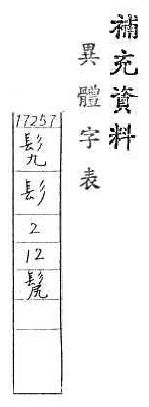 補充資料
異體字表
17257
髟
2
12